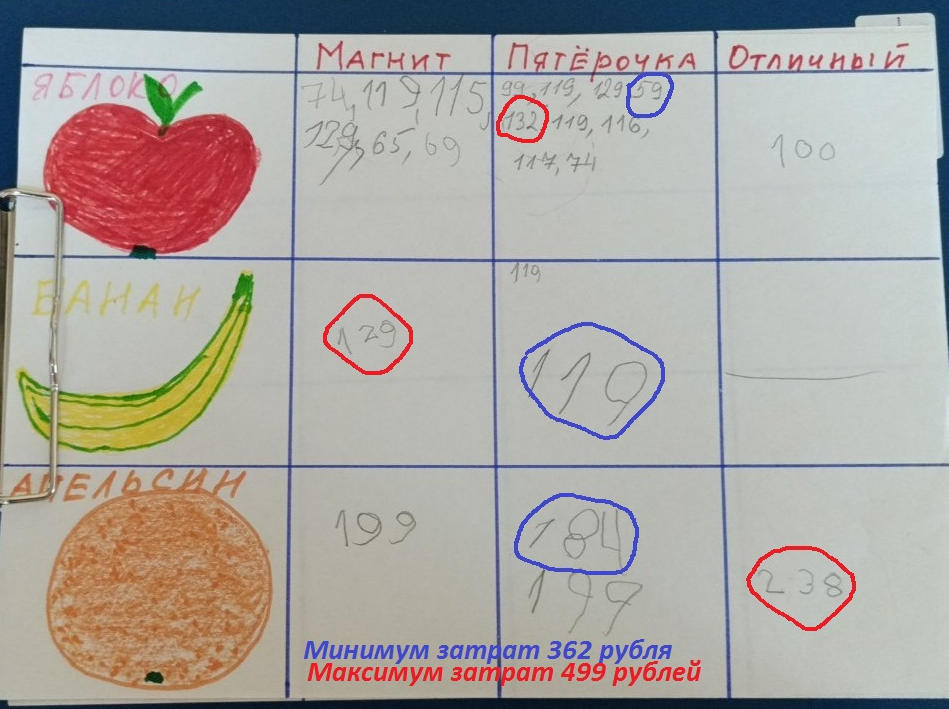 Магнит Пятёрочка Отличный
ЯБЛОКО
74, 119, 115, 99, 119, 129, 59
129, 65, 69 132, 119, 116, 100
117, 74
БАНАН 119
129 119
АПЕЛЬСИН
199 184
199 238
Минимум затрат 362 рубля
Максимум затрат 499 рублей